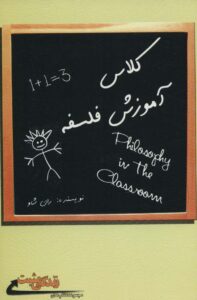 1+1=3
کلاس
آموزش فلسفه
Philosophy
in The
Classroom
نویسنده: ران شاو